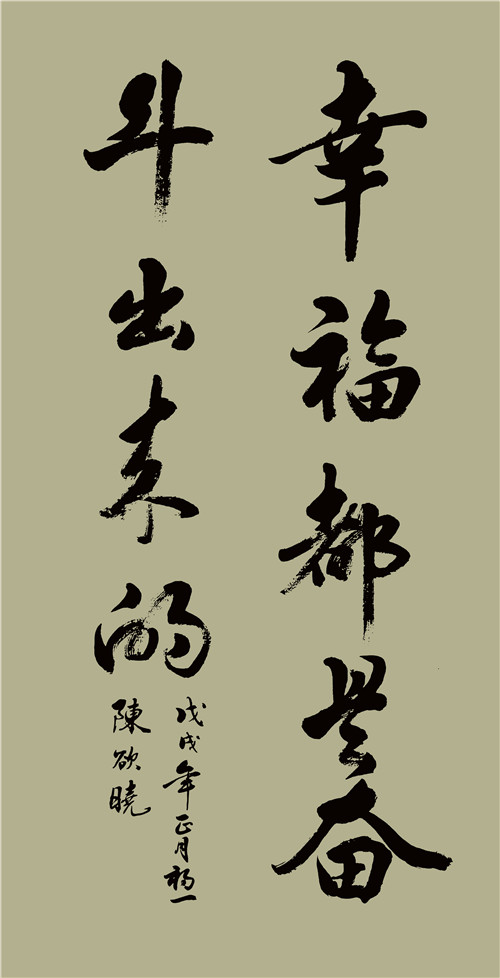 幸福都是奋
斗出来的
戊戌年正月初一
陳欲曉